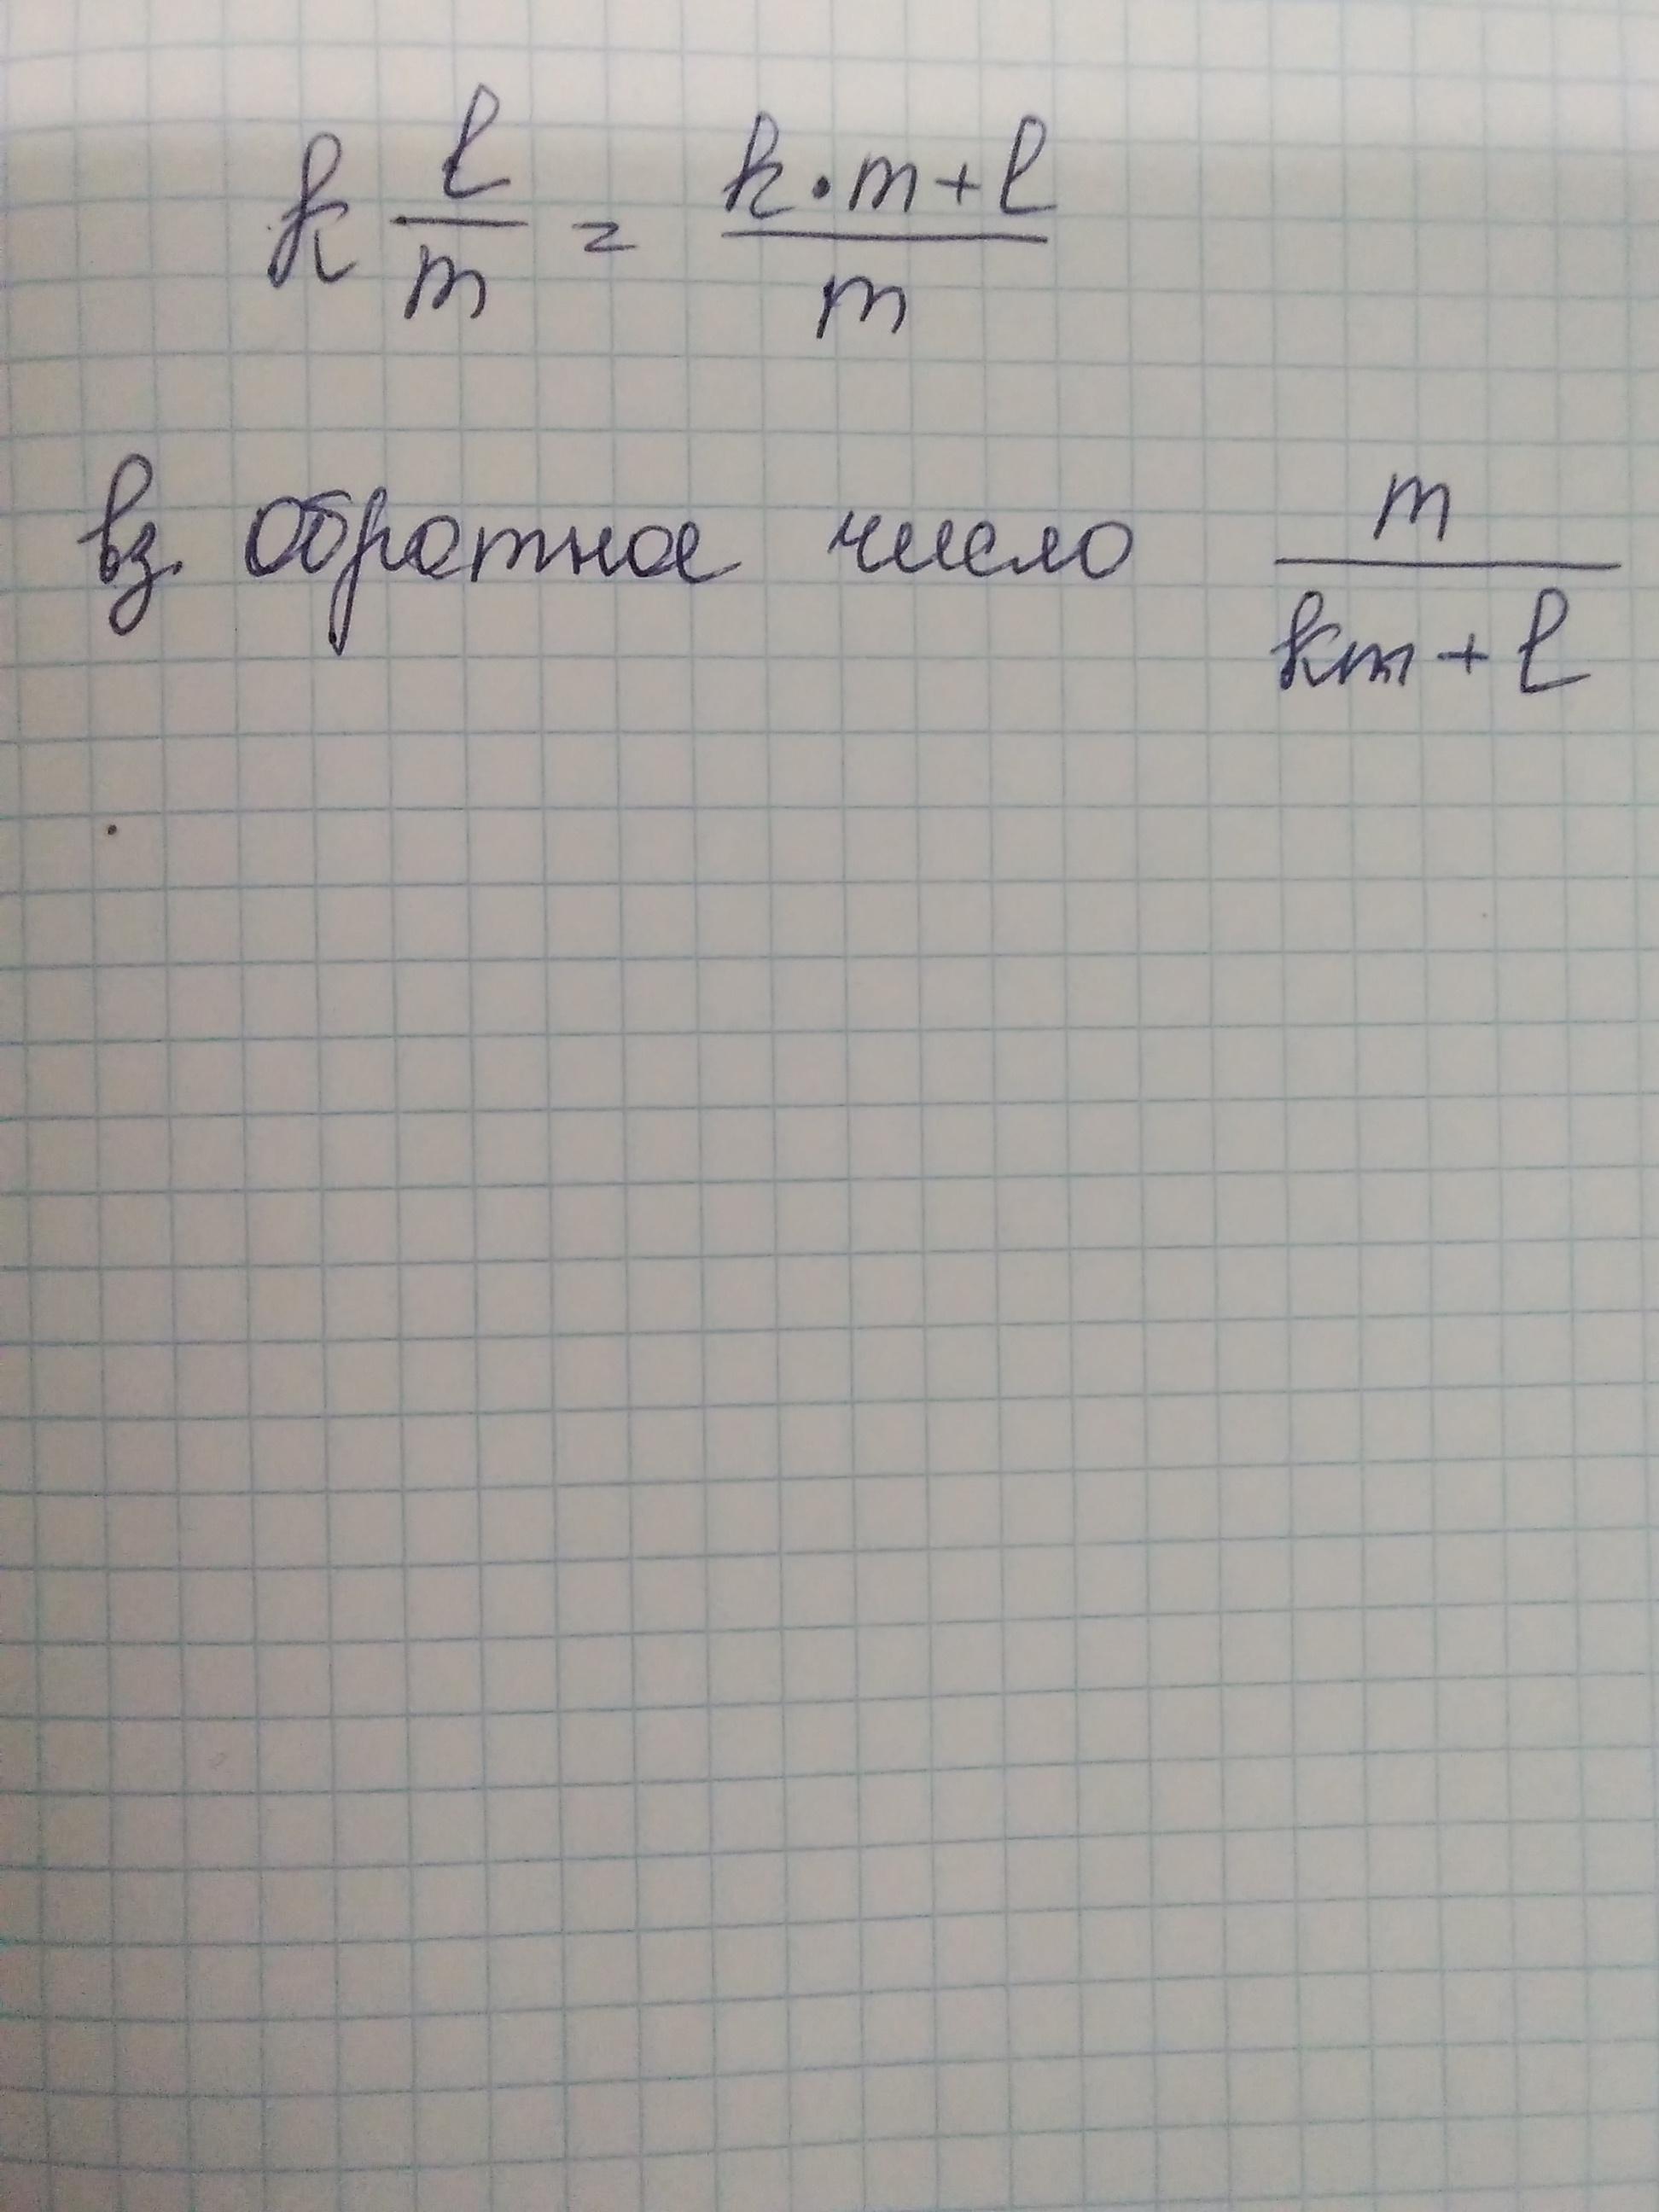 k l/m = k·m+l/m
вз. обратное число m/km+l